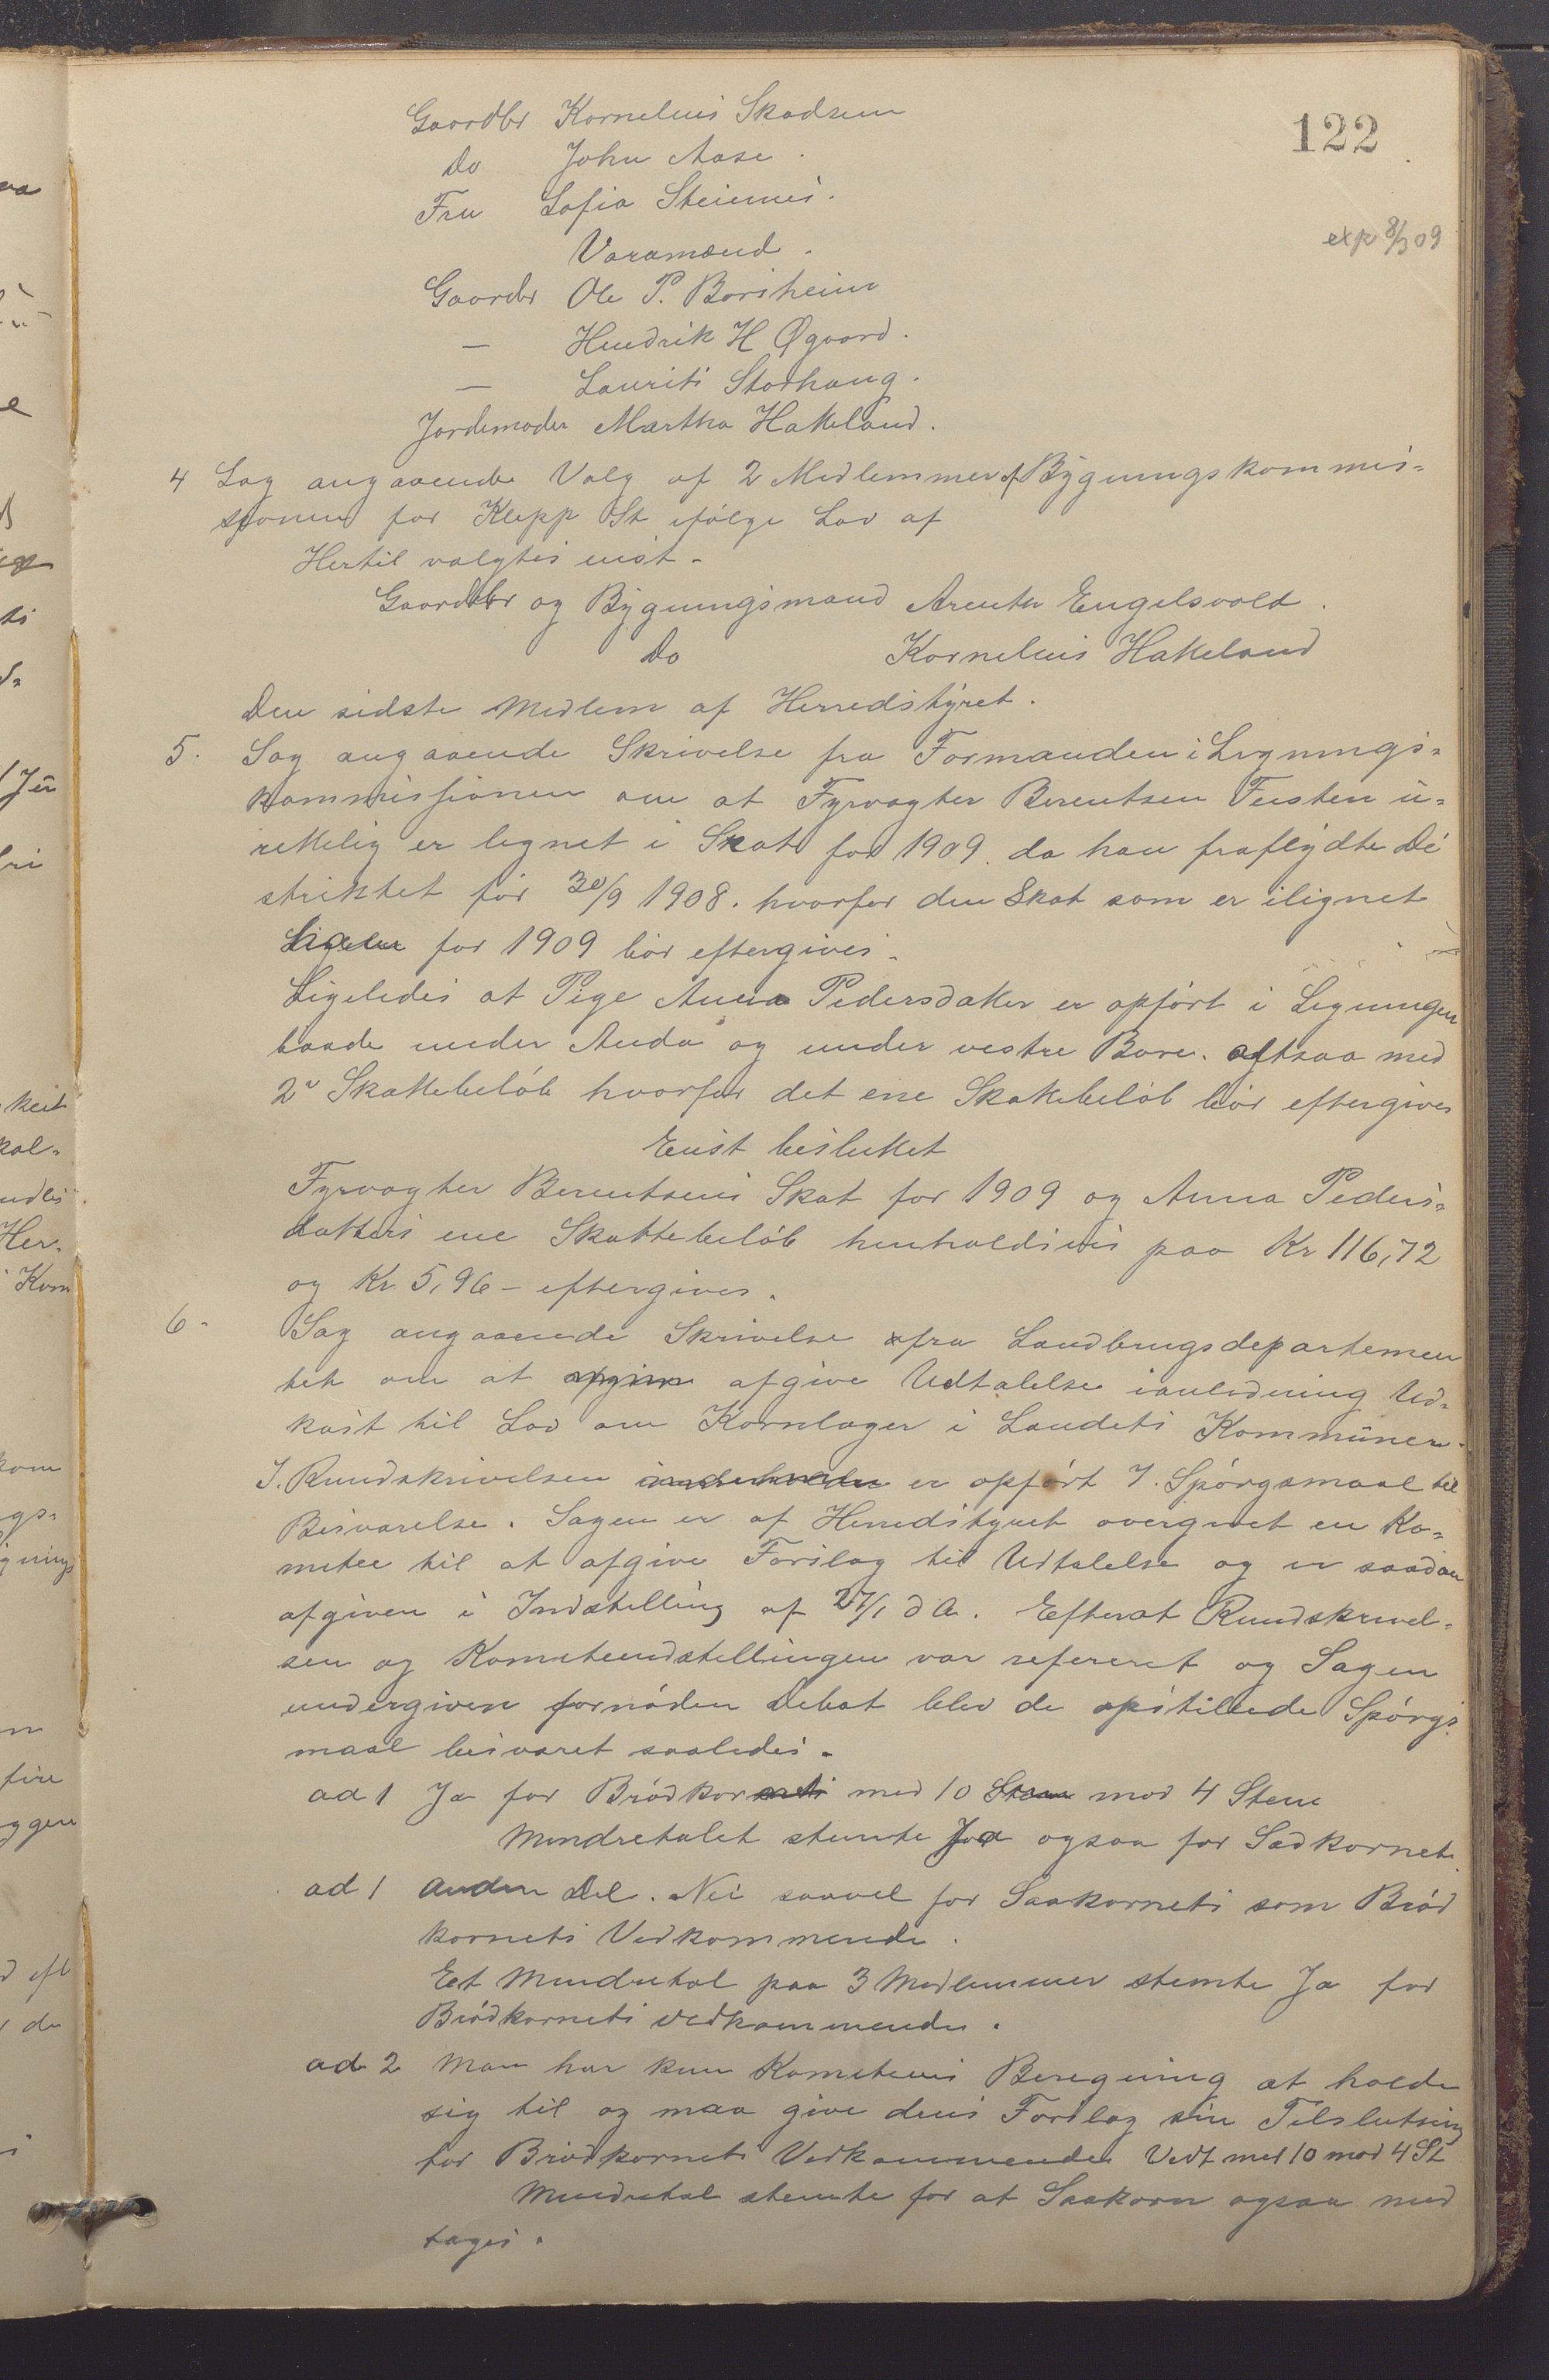 122
exp 8/3 09
Gaardbr Kornelius Skadsem
Do John Aase.
Fru Sofia Steinnes.
Varamænd.
Gaardbr Ole P. Borsheim
— Hendrik H Øgaard.
— Laurits Storhaug.
Jordemoder Martha Hatteland.
4 Sag angaaende Valg af 2 Medlemmer af Bygningskommis-
sjonen for Klepp St ifølge Lov af
Hertil valgtes enst.
Gaardbr og Bygningsmand Arent Engelsvold.
Do Kornelius Hatteland
Den sidste Medlem af Herredstyret.
5. Sag angaaende Skrivelse fra Formanden i Lignings-
kommissionen om at Fyrvogter Berentsen Feisten u-
rettelig er lignet i Skat for 1909. da han fraflydte Di
striktet før 30/9 1908. hvorfor den Skat som er ilignet
for 1909 bør eftergives.
Ligeledes at Pige Anna Pedersdatter er opført i Ligningen
baade under Anda og under vestre Bore. altsaa med
2 Skattebeløb hvorfor det ene Skattebeløb bør eftergives
Enst besluttet
Fyrvogter Berentsens Skat for 1909 og Anna Peders-
datters ene Skattebeløb henholdsvis paa Kr 116,72
og Kr 5,96 – eftergives.
6. Sag angaaende Skrivelse fra Landbrugsdepartemen
tet om at afgive Udtalelse ianledning Ud-
kast til Lov om Kornlager i Landets Kommuner.
I. Rundskrivelsen inderholder er opført 7. Spørgsmaal til
Besvarelse. Sagen er af Herredstyret overgivet en Ko-
mitee til at afgive Forslag til Udtalelse og er saadan
afgiven i Indstilling af 27/1 d A. Efterat Rundskrivel-
sen og Komiteindstillingen var refereret og Sagen
undergiven fornøden Debat blev de opstillede Spørgs
maal besvaret saaledes.
ad 1 Ja for Brødkornets med 10 Stem mod 4 Stem
Mindretalet stemte Ja ogsaa for Sædkornet.
ad 1 Anden Del. Nei saavel for Saakornets som Brød
kornets Vedkommende.
Et Mindretal paa 3 Medlemmer stemte Ja for
Brødkornets vedkommende.
ad 2 Man har kun Komiteens Beregning at holde
sig til og maa give dens Forslag sin Tilslutning
for Brødkornets Vedkommende Vedt med 10 mod 4 St
Mindretal stemte for at Saakorn ogsaa med
tages.